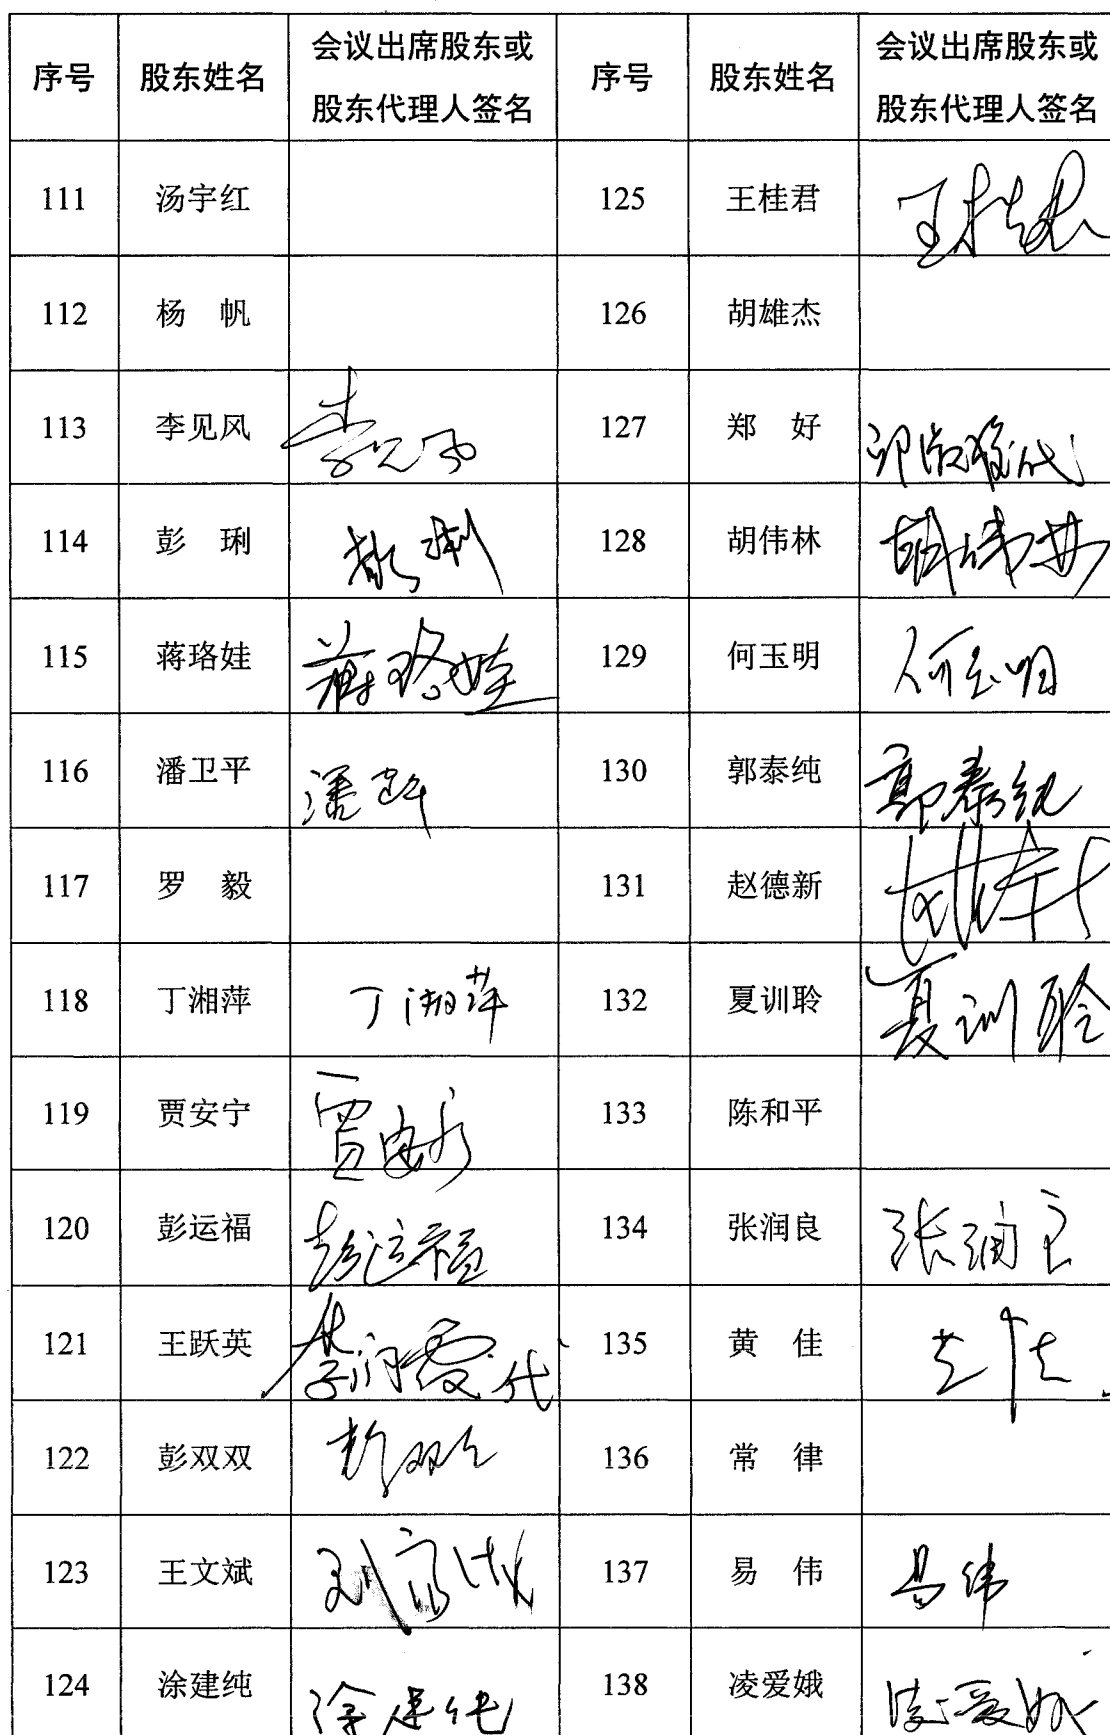 序号 股东姓名 会议出席股东或股东代理人签名 序号 股东姓名 会议出席股东或股东代理人签名
111 汤宇红 125 王桂君 王桂君
112 杨 帆 126 胡雄杰
113 李见风 李见风 127 郑 好 代
114 彭 琍 彭琍 128 胡伟林 胡伟林
115 蒋珞娃 蒋珞娃 129 何玉明 何玉明
116 潘卫平 潘卫平 130 郭泰纯 郭泰纯
117 罗 毅 131 赵德新
118 丁湘萍 丁湘萍 132 夏训聆 夏训聆
119 贾安宁 贾安宁 133 陈和平
120 彭运福 彭运福 134 张润良 张润良
121 王跃英 李润霞代 135 黄 佳 黄佳
122 彭双双 彭双双 136 常 律
123 王文斌 137 易 伟 易伟
124 涂建纯 涂建纯 138 凌爱娥 凌爱娥